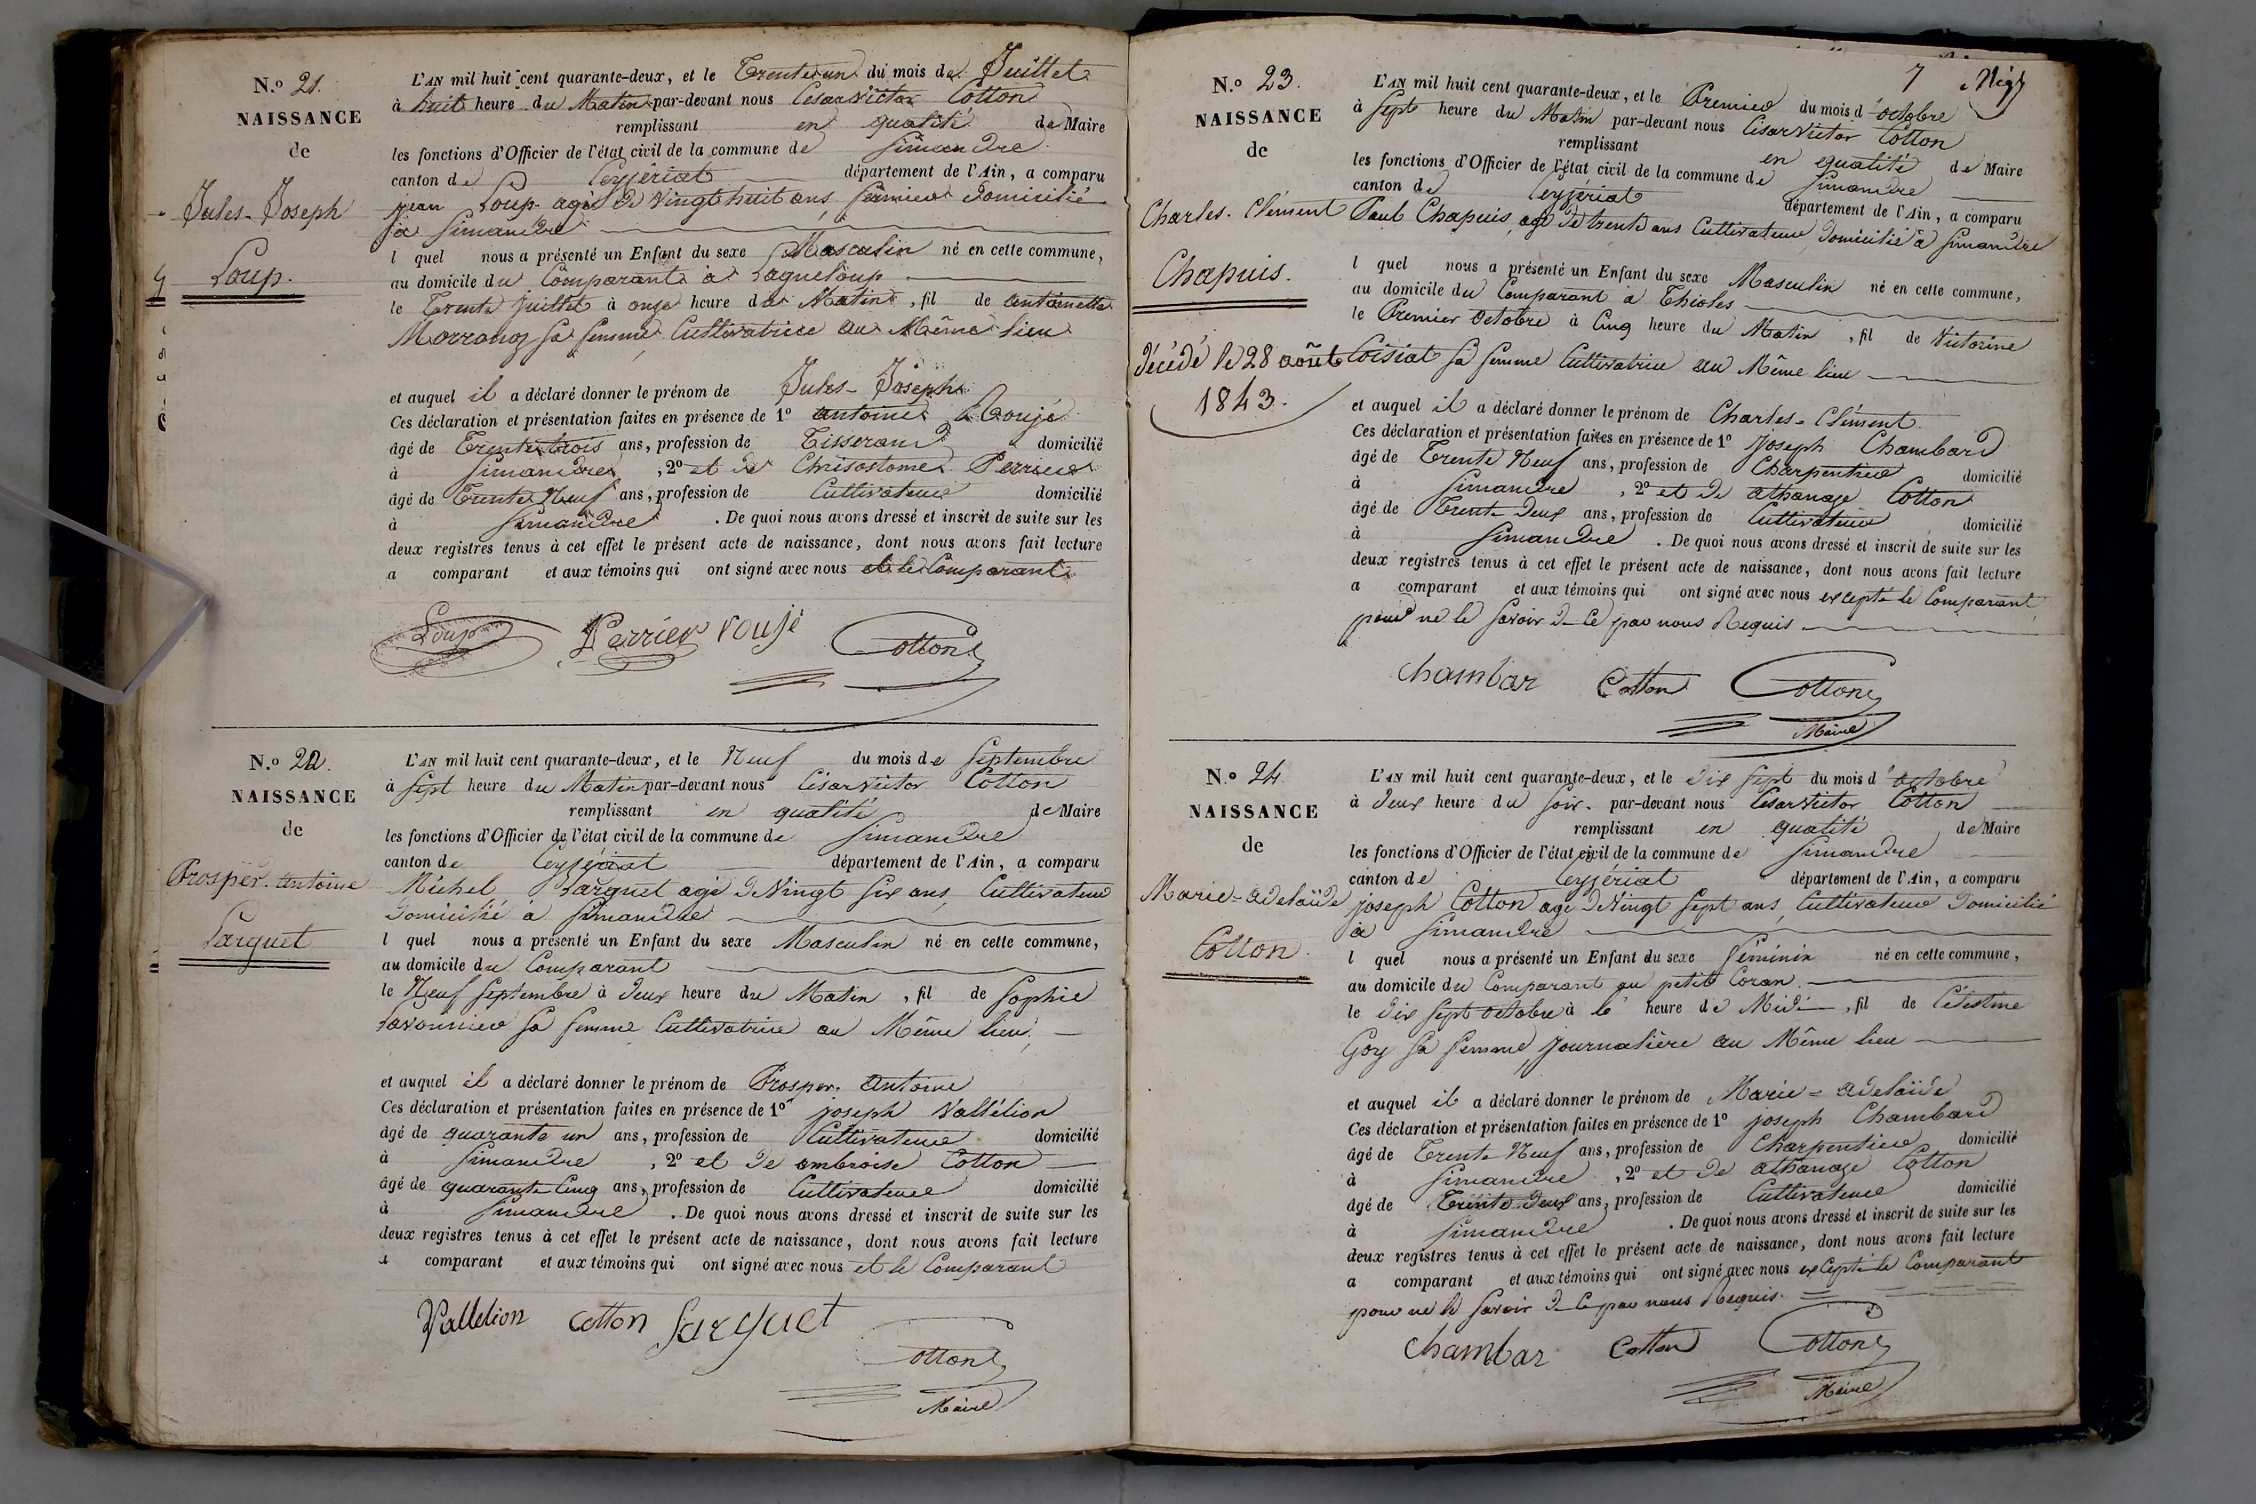 N.o 21.
NAISSANCE
de
Jules-Joseph
Loup.
L'AN mil huit cent quarante-deux, et le Trente un du mois de Juillet
à huit heure du Matin par-devant nous César Victor Cotton
remplissant en qualité de Maire
les fonctions d'Officier de l'état civil de la commune de Simandre
canton de Ceyzériat département de l'Ain, a comparu
jean Loup agé de Vingt huit ans, fermier domicilié
à Simandre
l quel nous a présenté un Enfant du sexe Masculin né en cette commune,
au domicile du Comparant à Racqueloup
le Trente juillet à onze heure du Matin, fil de antoinette
Morrouoz sa femme Cultivatrice au Même lieu
et auquel il a déclaré donner le prénom de Jules-Joseph
Ces déclaration et présentation faites en présence de 1º antoine Roujé
âgé de Trente trois ans, profession de Tisserand domicilié
à Simandre, 2º et de Chrisostome Perrier
âgé de Trente Neuf ans, profession de Cultivateur domicilié
à Simandre. De quoi nous avons dressé et inscrit de suite sur les
deux registres tenus à cet effet le présent acte de naissance, dont nous avons fait lecture
a comparant et aux témoins qui ont signé avec nous et le Comparant
Loup Perrier roujé Cotton
N.o 22.
NAISSANCE
de
Prosper-antoine
Larguet
L'AN mil huit cent quarante-deux, et le Neuf du mois de Septembre
à Sept heure du Matin par-devant nous César Victor Cotton
remplissant en qualité de Maire
les fonctions d'Officier de l'état civil de la commune de Simandre
canton de Ceyzériat département de l'Ain, a comparu
Michel Larguet agé de Vingt six ans, Cultivateur
domicilié à Simandre
l quel nous a présenté un Enfant du sexe Masculin né en cette commune,
au domicile du Comparant
le Neuf Septembre à deux heure du Matin, fil de Sophie
Savonnier sa femme Cultivatrice au Même lieu
et auquel il a déclaré donner le prénom de Prosper-antoine
Ces déclaration et présentation faites en présence de 1º joseph Vallélion
âgé de quarante un ans, profession de Cultivateur domicilié
à Simandre, 2º et de ambroise Cotton
âgé de quarante Cinq ans, profession de Cultivateur domicilié
à Simandre. De quoi nous avons dressé et inscrit de suite sur les
deux registres tenus à cet effet le présent acte de naissance, dont nous avons fait lecture
a comparant et aux témoins qui ont signé avec nous et le Comparant
Vallelion Cotton Larguet
Cotton
Maire
7
N.o 23.
NAISSANCE
de
Charles-Clément
Chapuis.
décédé le 28 août
1843.
L'AN mil huit cent quarante-deux, et le Premier du mois d'octobre
à Sept heure du Matin par-devant nous César Victor Cotton
remplissant en qualité de Maire
les fonctions d'Officier de l'état civil de la commune de Simandre
canton de Ceyzériat département de l'Ain, a comparu
Paul Chapuis, agé de trente ans Cultivateur, domicilié à Simandre
l quel nous a présenté un Enfant du sexe Masculin né en cette commune,
au domicile du Comparant à Thioles
le Premier Octobre à Cinq heure du Matin, fil de Victorine
Coisiat sa femme Cultivatrice au Même lieu
et auquel il a déclaré donner le prénom de Charles-Clément
Ces déclaration et présentation faites en présence de 1º joseph Chambard
âgé de Trente Neuf ans, profession de Charpentier domicilié
à Simandre, 2º et de athanaze Cotton
âgé de Trente deux ans, profession de Cultivateur domicilié
à Simandre. De quoi nous avons dressé et inscrit de suite sur les
deux registres tenus à cet effet le présent acte de naissance, dont nous avons fait lecture
a comparant et aux témoins qui ont signé avec nous excepté le Comparant
pour ne le savoir de ce par nous Requis
Chambar Cotton Cotton
Maire
N.o 24.
NAISSANCE
de
Marie-adelaïde
Cotton
L'AN mil huit cent quarante-deux, et le dix sept du mois d'octobre
à deux heure du soir. par-devant nous César Victor Cotton
remplissant en qualité de Maire
les fonctions d'Officier de l'état civil de la commune de Simandre
canton de Ceyzériat département de l'Ain, a comparu
joseph Cotton agé de Vingt Sept ans, Cultivateur domicilié
à Simandre
l quel nous a présenté un Enfant du sexe féminin né en cette commune,
au domicile du Comparant au petit Coran.
le dix Sept octobre à le heure de Midi, fil de Célestine
Goy sa femme journalière au Même lieu
et auquel il a déclaré donner le prénom de Marie-adelaïde
Ces déclaration et présentation faites en présence de 1º joseph Chambard
âgé de Trente Neuf ans, profession de Charpentier domicilié
à Simandre, 2º et de athanaze Cotton
âgé de Trente deux ans, profession de Cultivateur domicilié
à Simandre. De quoi nous avons dressé et inscrit de suite sur les
deux registres tenus à cet effet le présent acte de naissance, dont nous avons fait lecture
a comparant et aux témoins qui ont signé avec nous excepté le Comparant
pour ne le savoir de ce par nous Requis.
Chambar Cotton Cotton
Maire